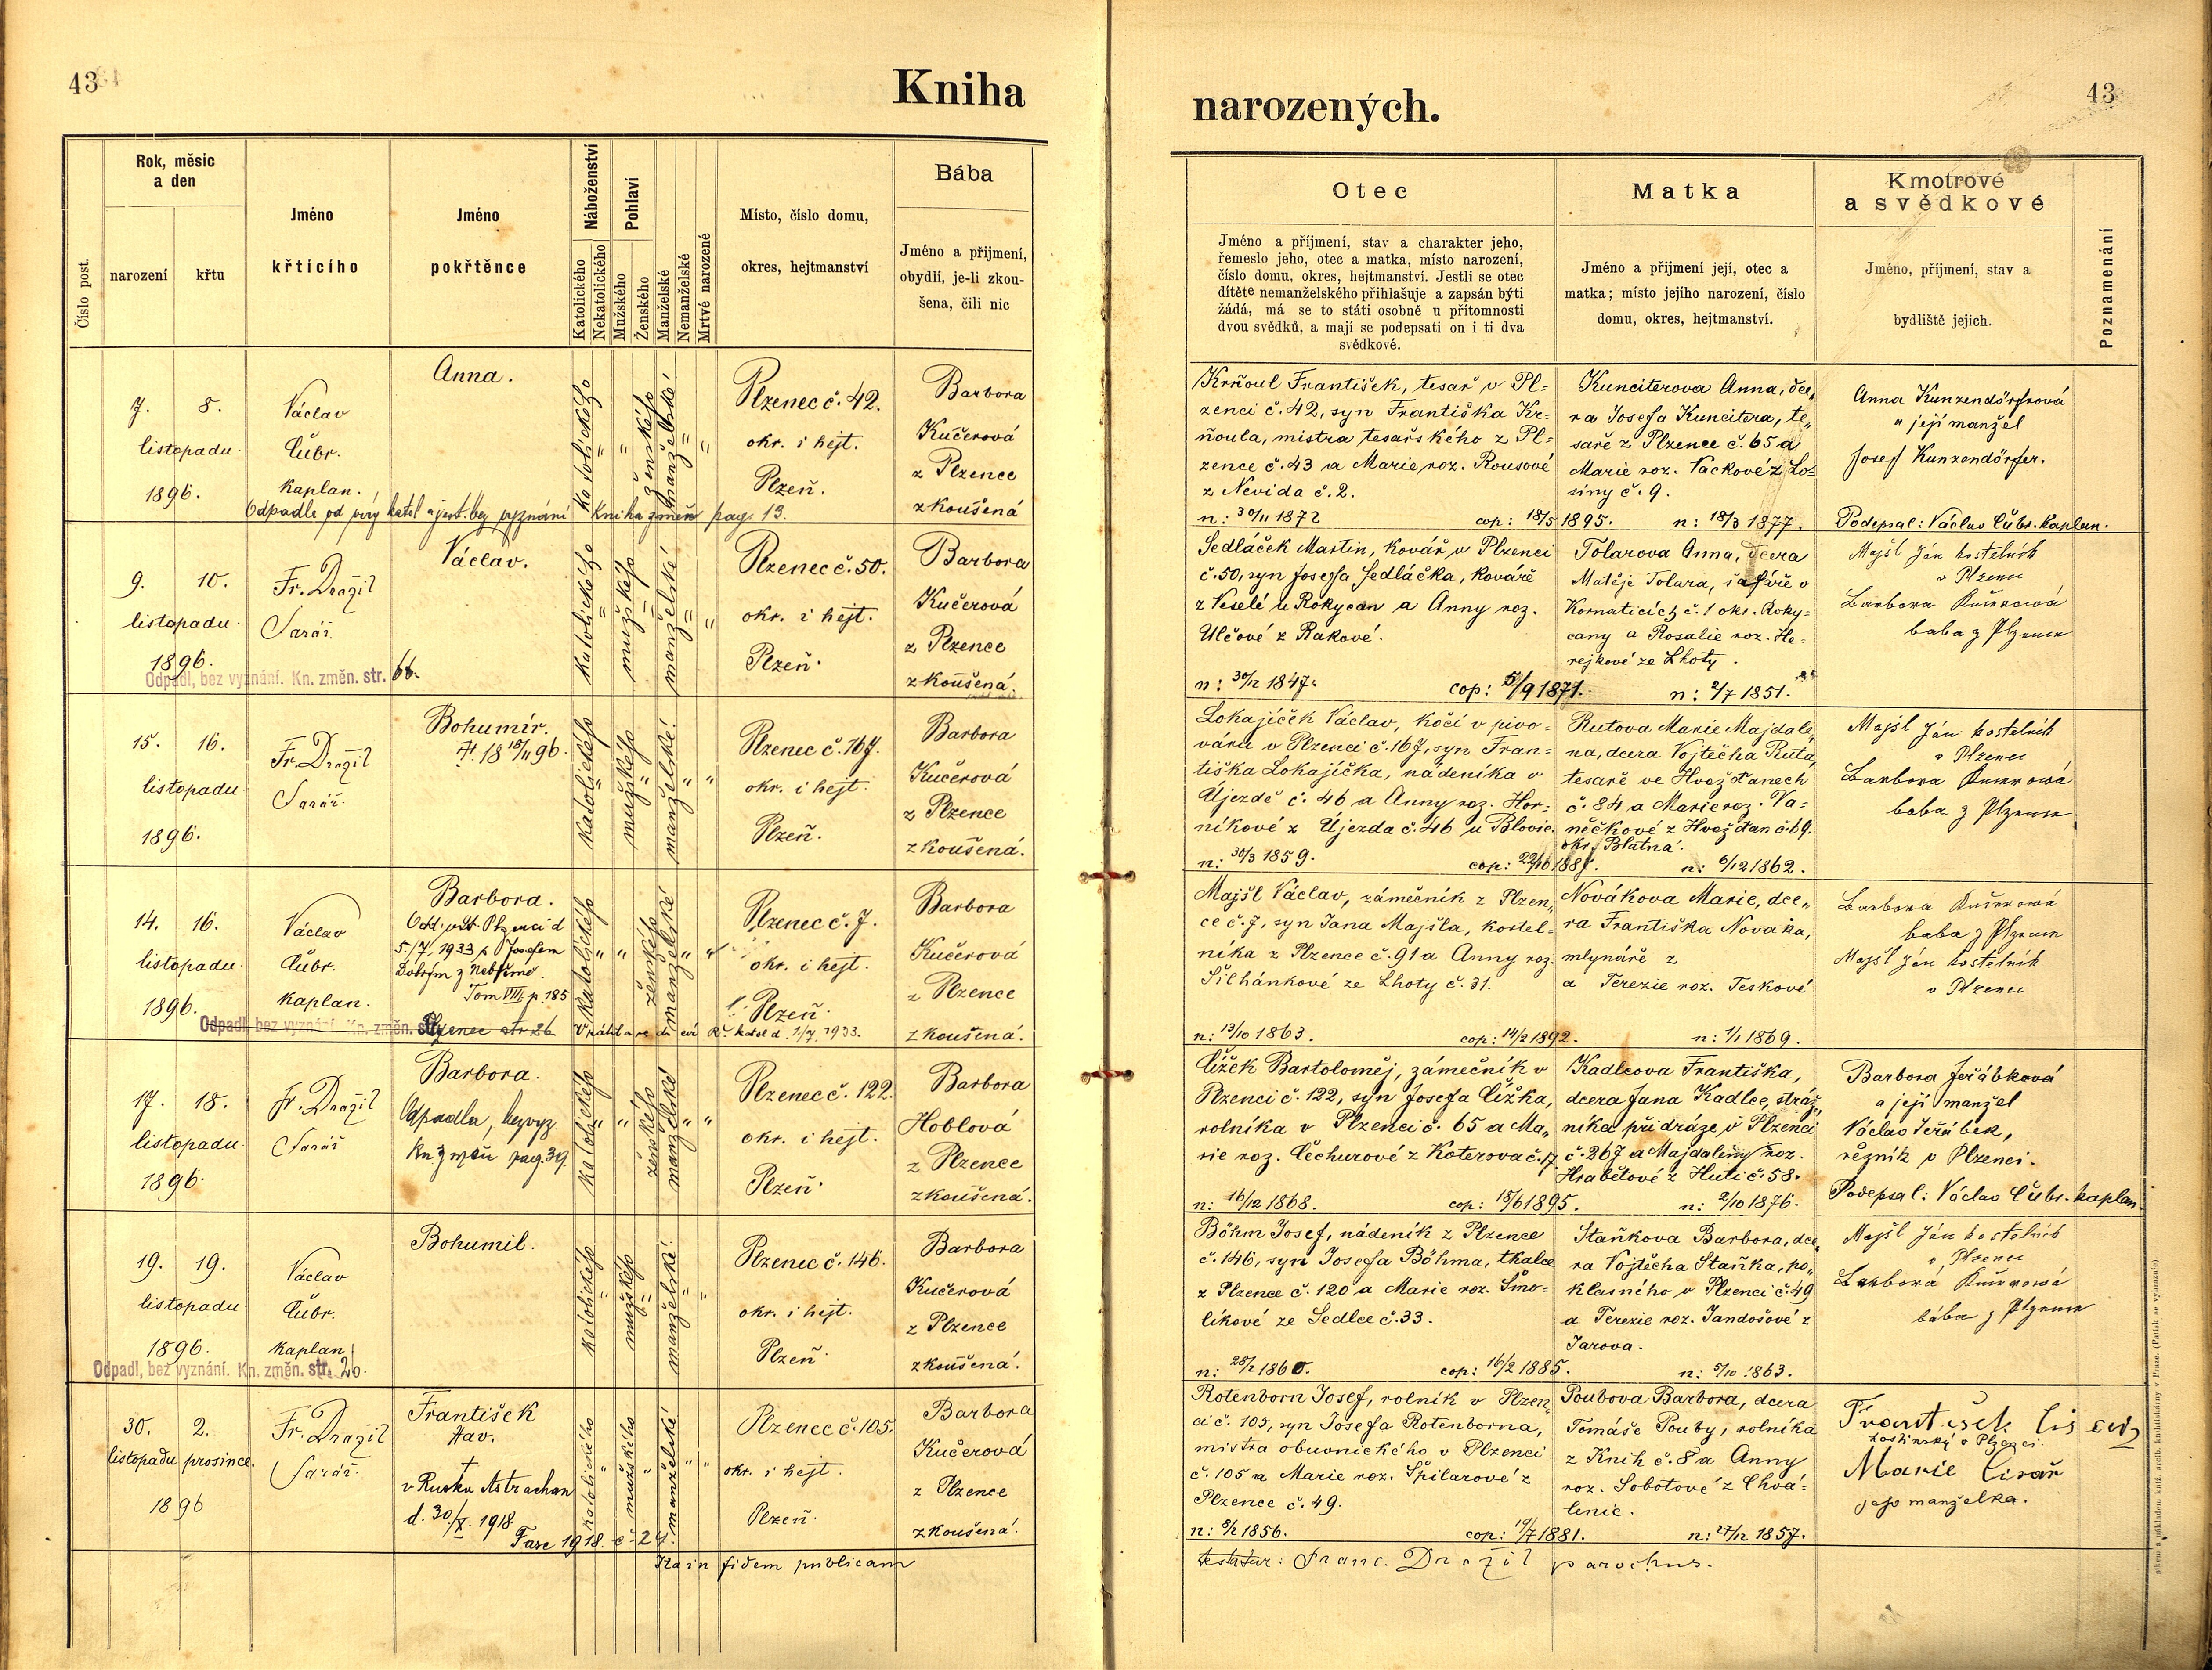 43
Kniha
Číslo post.
Rok, měsíc
a den
narození
křtu
Jméno
křtícího
Jméno
pokřtěnce
Náboženství
Katolického
Nekatolického
Pohlaví
Mužského
Ženského
Manželské
Nemanželské
Mrtvě narozené
Místo, číslo domu,
okres, hejtmanství
Bába
Jméno a přijmení,
obydlí, je-li zkou-
šena, čili nic
7. 8.
listopadu
1896.
Václav
Čubr.
Kaplan.
Anna.
katolického
ženského
manželské
Plzenec č. 42.
okr. i hejt.
Plzeň.
Barbora
Kučerová
z Plzence
zkoušená
Kniha změn pag. 13.
9. 10.
listopadu
1896.
Fr. Dražil
farář.
Václav.
Odpadl, bez vyznání. Kn. změn. str. 66.
katolického
mužského
manželské
Plzenec č. 50.
okr. i hejt.
Plzeň.
Barbora
Kučerová
z Plzence
zkoušená.
15. 16.
listopadu
1896.
Fr. Dražil
farář.
Bohumír.
katolického
mužského
manželské
Plzenec č. 167.
okr. i hejt.
Plzeň.
Barbora
Kučerová
z Plzence
zkoušená.
14. 16.
listopadu
1896.
Václav
Čubr.
Kaplan.
Barbora.
5/7. 1933 s Josefem
Tom VIII. p. 185
Odpadl, bez vyznání. Kn. změn. str.
Plzenec str 26
katolického
ženského
manželské
Plzenec č. 7.
okr. i hejt.
Plzeň.
Barbora
Kučerová
z Plzence
zkoušená.
17. 18.
listopadu
1896.
Fr. Dražil
farář
Barbora.
Odpadla, bez vyz.
Kn. změn pag. 39.
katolického
ženského
manželské
Plzenec č. 122.
okr. i hejt.
Plzeň.
Barbora
Hoblová
z Plzence
zkoušená.
19. 19.
listopadu
1896.
Václav
Čubr.
Kaplan
Bohumil.
Odpadl, bez vyznání. Kn. změn. str. 20.
katolického
mužského
manželské
Plzenec č. 146.
okr. i hejt.
Plzeň.
Barbora
Kučerová
z Plzence
zkoušená.
30. 2.
listopadu prosince.
1896
Fr. Dražil
farář.
František
Xav.
†
v Rusku Astrachan
d. 30/X. 1918
Fasc 1918. č. 24.
katolického
mužského
manželské
Plzenec č. 105.
okr. i hejt.
Plzeň.
Barbora
Kučerová
z Plzence
zkoušená.
Ita in fidem publicam
narozených.
43
Otec
Jméno a příjmení, stav a charakter jeho,
řemeslo jeho, otec a matka, místo narození,
číslo domu, okres, hejtmanství. Jestli se otec
dítěte nemanželského přihlašuje a zapsán býti
žádá, má se to státi osobně u přítomnosti
dvou svědků, a mají se podepsati on i ti dva
svědkové.
Matka
Jméno a příjmení její, otec a
matka; místo jejího narození, číslo
domu, okres, hejtmanství.
Kmotrové
a svědkové
Jméno, příjmení, stav a
bydliště jejich.
Poznamenání
Krňoul František, tesař v Pl-
zenci č. 42, syn Františka Kr-
ňoula, mistra tesařského z Pl-
zence č. 43 a Marie roz. Rousové
z Nevida č. 2.
n: 30/11 1872
cop: 18/5 1895.
Kunciterova Anna, dce-
ra Josefa Kuncitera, te-
saře z Plzence č. 65 a
Marie roz. Vackové z Lo-
siny č. 9.
n: 18/3 1877.
Anna Kunzendörfrová
a její manžel
Josef Kunzendörfer.
Podepsal: Václav Čubr. Kaplan.
Sedláček Martin, kovář v Plzenci
č. 50, syn Josefa Sedláčka, kováře
z Veselé u Rokycan a Anny roz.
Ulčové z Rakové.
n: 30/12 1847.
cop: 5/9 1871.
Tolarova Anna, dcera
Matěje Tolara, šafáře v
Kornaticích č. 1 okr. Roky-
cany a Rosalie roz. He-
rejkové ze Lhoty.
n: 2/7 1851.
Majšl Ján kostelník
v Plzenci
Barbora Kučerová
baba z Plzence
Lokajíček Václav, kočí v pivo-
váru v Plzenci č. 167, syn Fran-
tiška Lokajíčka, nádeníka v
Újezdě č. 46 a Anny roz. Hor-
níkové z Újezda č. 46 u Blovic.
n: 30/3 1859.
Rutova Marie Majdale-
na, dcera Vojtěcha Ruta,
tesaře ve Hvožďanech
č. 84 a Marie roz. Va-
něčkové z Hvožďan č. 69.
okr. Blatná.
n: 6/12 1862.
Majšl Ján kostelník
v Plzenci
Barbora Kučerová
baba z Plzence
Majšl Václav, zámečník z Plzen-
ce č. 7, syn Jana Majšla, kostel-
níka z Plzence č. 91 a Anny roz.
Šilhánkové ze Lhoty č. 31.
n: 13/10 1863.
cop: 14/2 1892.
Novákova Marie, dce-
ra Františka Nováka,
mlynáře z
a Terezie roz. Teskové
n: 1/1 1869.
Barbora Kučerová
baba z Plzence
Majšl Ján kostelník
v Plzenci
Čížek Bartoloměj, zámečník v
Plzenci č. 122, syn Josefa Čížka,
rolníka v Plzenci č. 65 a Ma-
rie roz. Čechurové z Koterova č. 17.
n: 16/12 1868.
cop: 18/6 1895.
Kadlcova Františka,
dcera Jana Kadlce, stráž-
níka při dráze v Plzenci
č. 267 a Majdaleny roz.
Hrabětové z Huti č. 58.
n: 2/10 1876.
Barbora Jeřábková
a její manžel
Václav Jeřábek,
řezník v Plzenci.
Podepsal: Václav Čubr. kaplan.
Böhm Josef, nádeník z Plzence
č. 146, syn Josefa Böhma, tkalce
z Plzence č. 120 a Marie roz. Smo-
líkové ze Sedlce č. 33.
n: 28/2 1860.
cop: 16/2 1885.
Staňkova Barbora, dce-
ra Vojtěcha Staňka, po-
klasného v Plzenci č. 49
a Terezie roz. Jandošové z
Jarova.
n: 5/10 1863.
Majšl Ján kostelník
v Plzenci
Barbora Kučerová
bába z Plzence
Rotenborn Josef, rolník v Plzen-
ci č. 105, syn Josefa Rotenborna,
mistra obuvnického v Plzenci
č. 105 a Marie roz. Špilarové z
Plzence č. 49.
n: 8/2 1856.
cop: 19/7 1881.
Poubova Barbora, dcera
Tomáše Pouby, rolníka
z Knih č. 8 a Anny
roz. Sobotové z Chvá-
lenic.
n: 27/12 1857.
František
hostinský v Plzenci.
Marie
jeho manželka.
testatur: Franc. Dražil parochus.